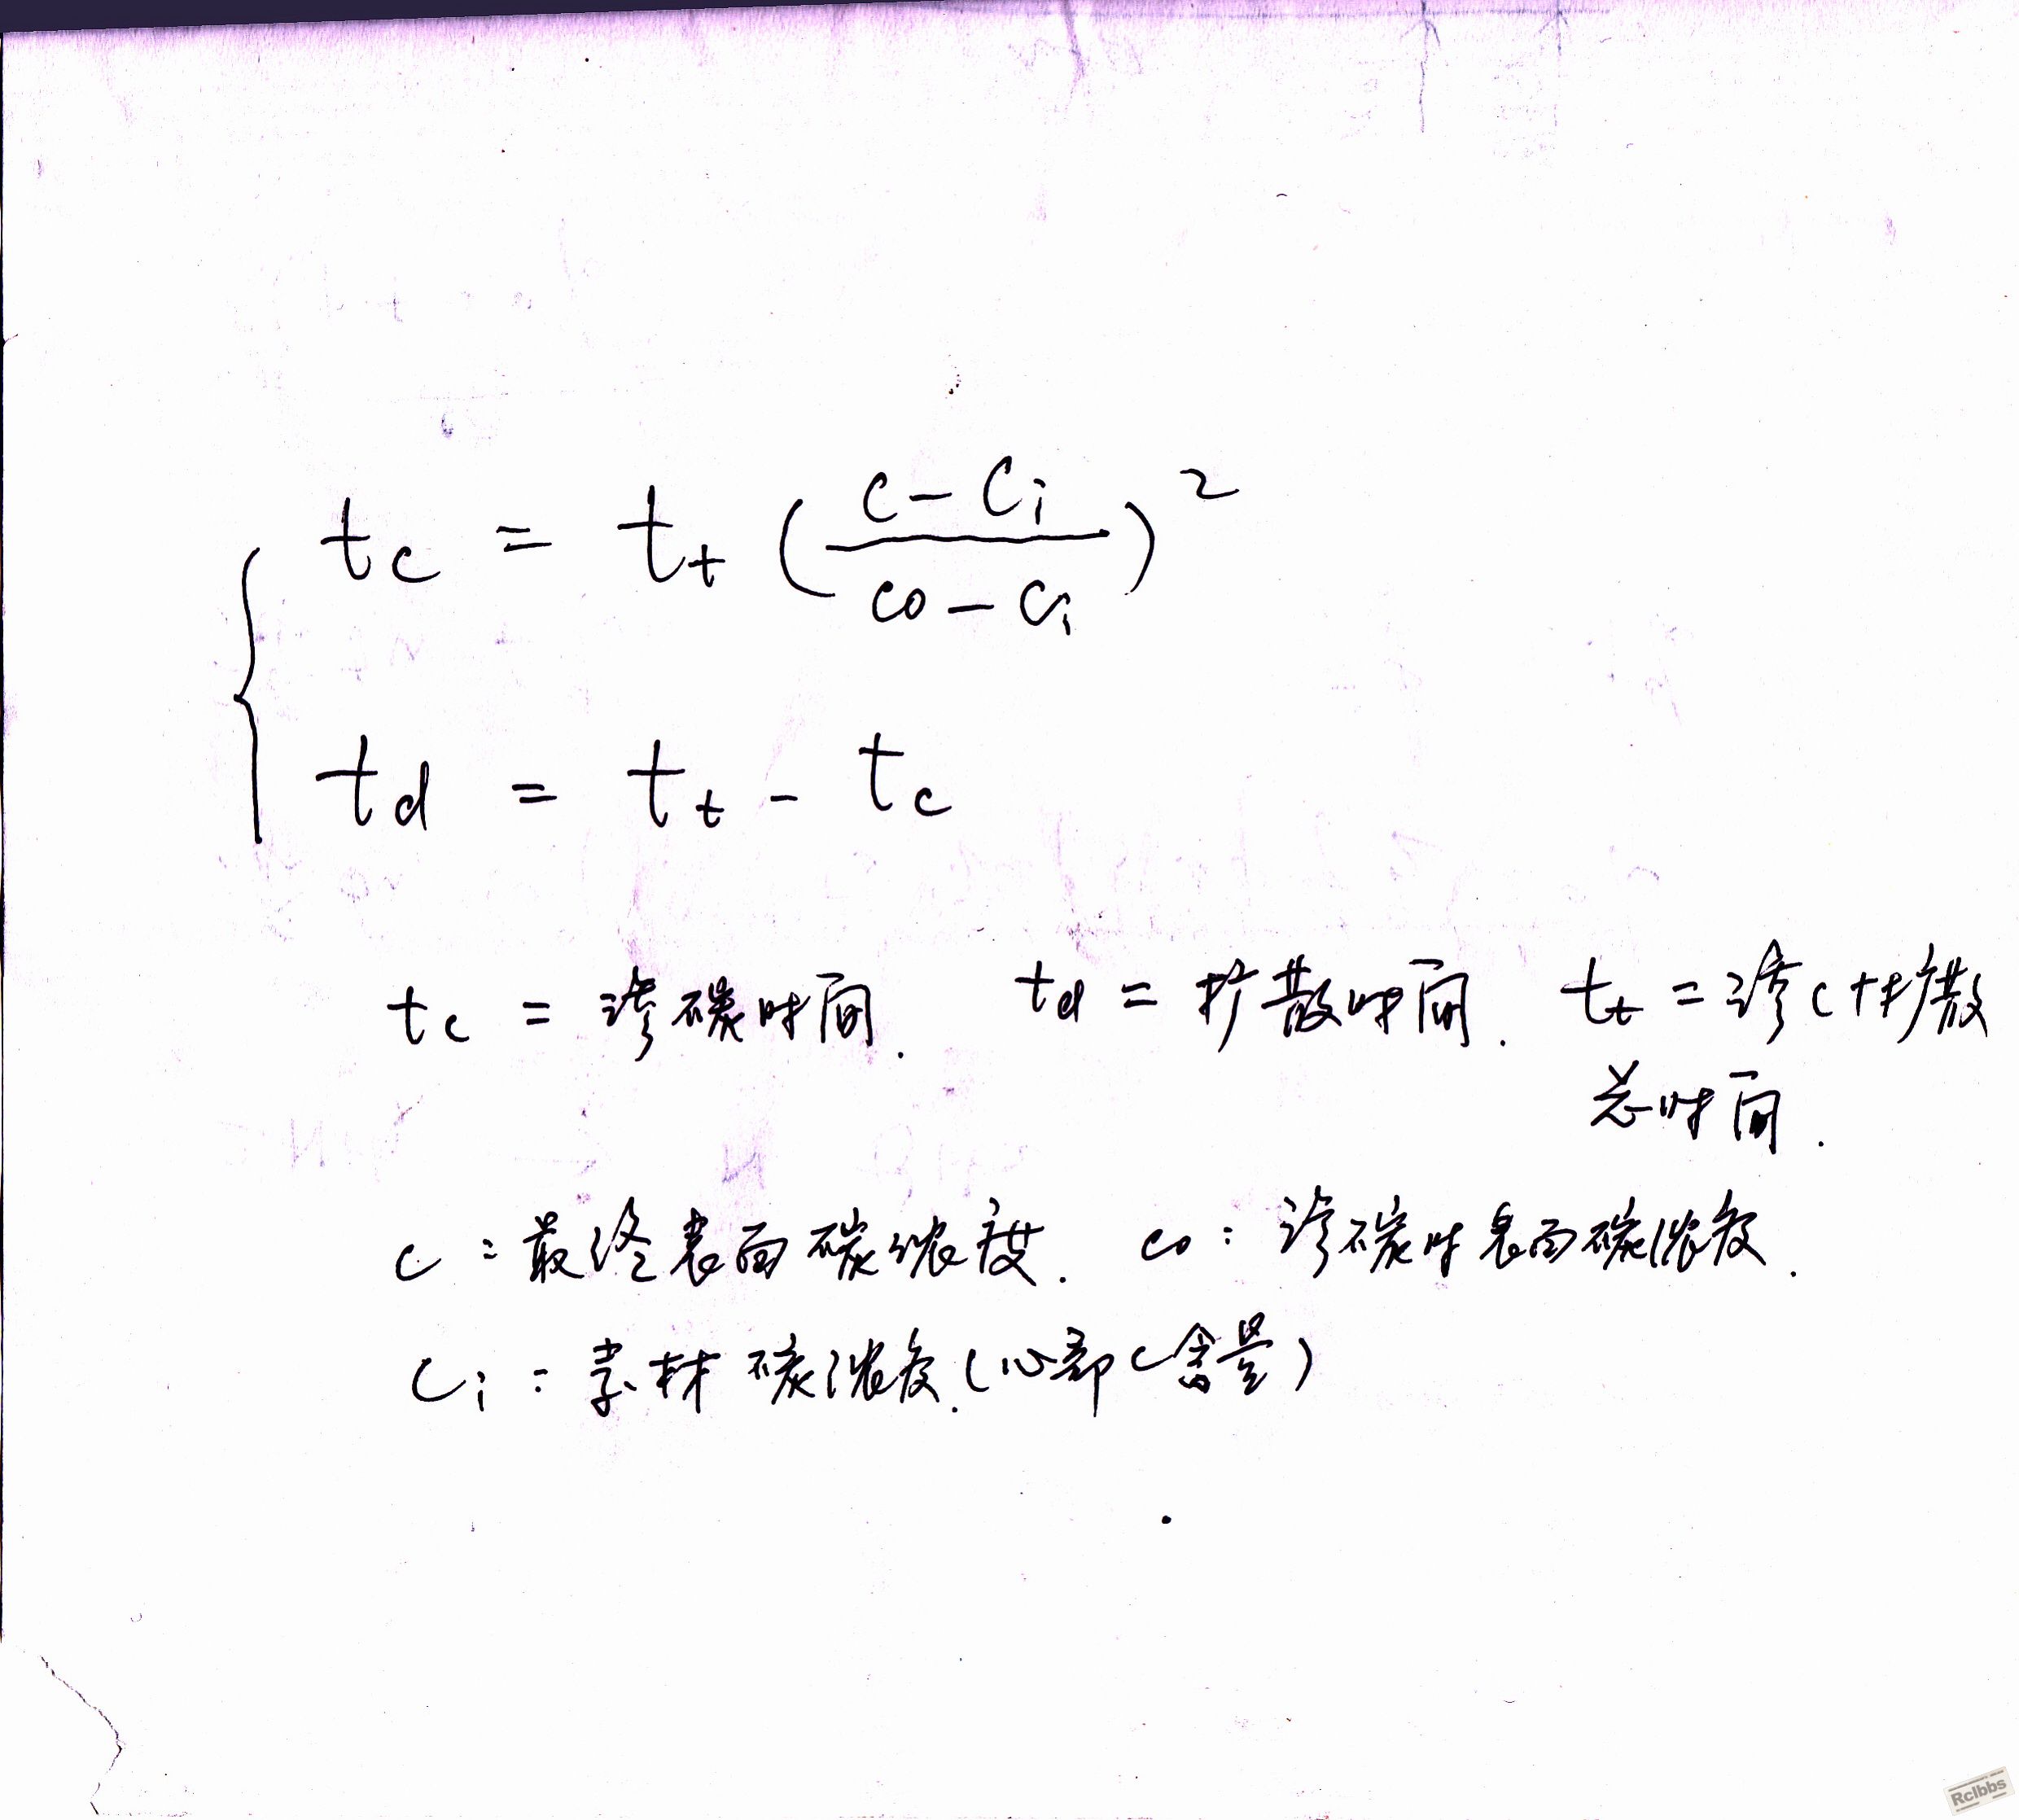 tc = tt (c - Ci / co - Ci)²
td = tt - tc
tc = 渗碳时间. td = 扩散时间. tt = 渗C+扩散
总时间.
c：最终表面碳浓度. co：渗碳时表面碳浓度.
Ci：素材碳浓度.(心部C含量)
Rclbbs